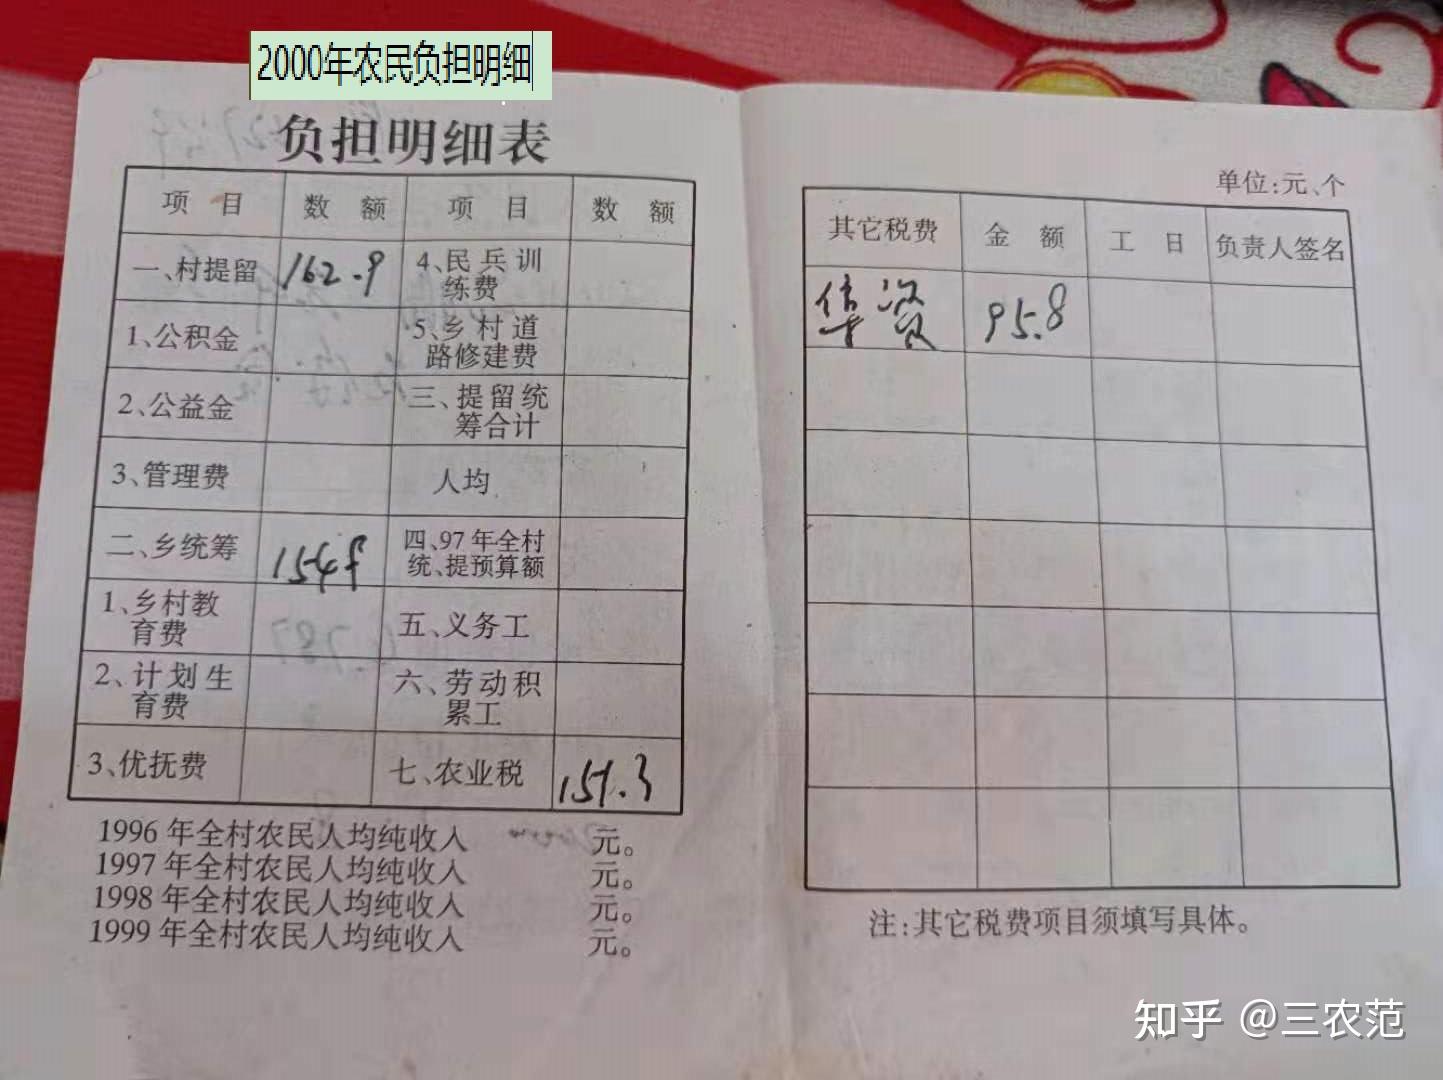 2000年农民负担明细
负担明细表
项 目 数 额 项 目 数 额
一、村提留 162.9 4、民兵训练费
1、公积金 5、乡村道路修建费
2、公益金 三、提留统筹合计
3、管理费 人均
二、乡统筹 四、97年全村统、提预算额
1、乡村教育费 五、义务工
2、计划生育费 六、劳动积累工
3、优抚费 七、农业税
1996年全村农民人均纯收入 元。
1997年全村农民人均纯收入 元。
1998年全村农民人均纯收入 元。
1999年全村农民人均纯收入 元。
单位:元、个
其它税费 金 额 工 日 负责人签名
集资 95.8
注:其它税费项目须填写具体。
知乎 @三农范